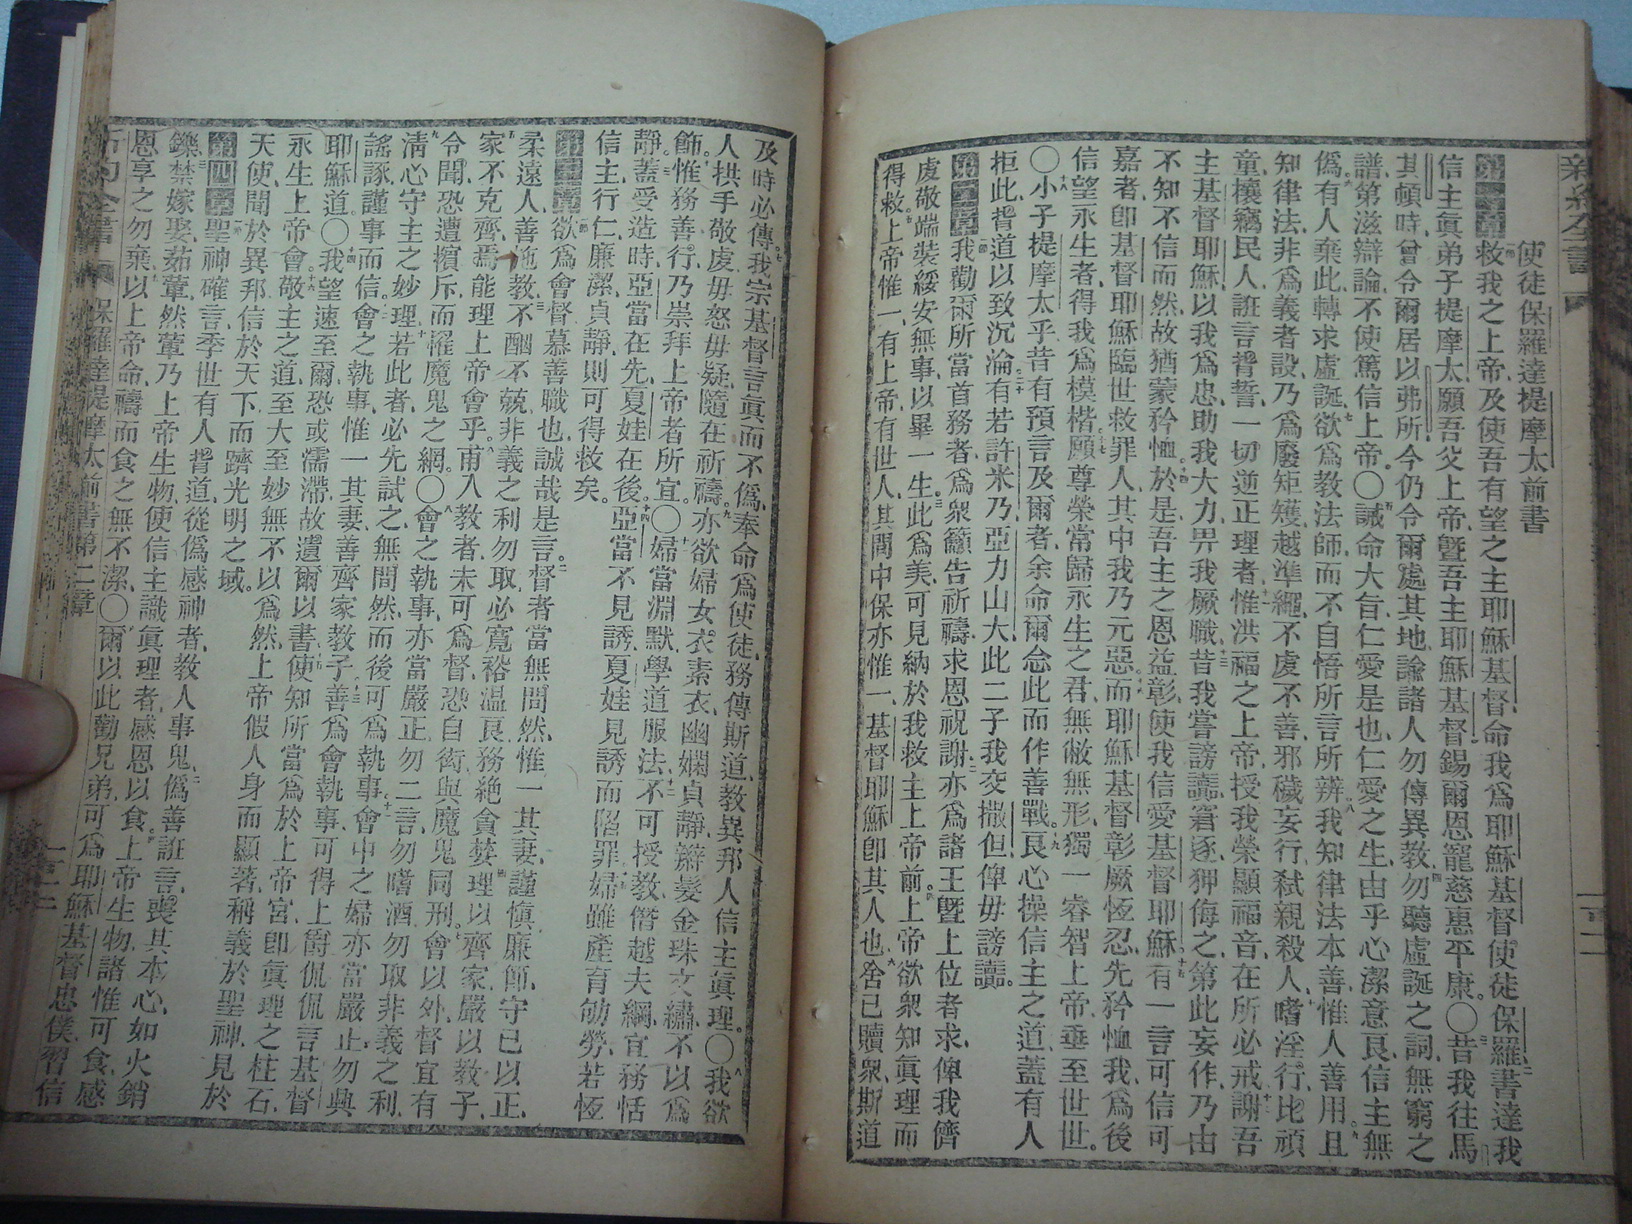 新約全書
使徒保羅達提摩太前書
第一章救我之上帝及使吾有望之主耶穌基督命我爲耶穌基督使徒保羅書達我
信主眞弟子提摩太願吾父上帝曁吾主耶穌基督錫爾恩寵慈惠平康〇昔我往馬
其頓時曾令爾居以弗所今仍令爾處其地論諸人勿傳異教勿聽虛誕之詞無窮之
譜第滋辯論不使篤信上帝〇誡命大旨仁愛是也仁愛之生由乎心潔意良信主無
僞有人棄此轉求虛誕欲爲教法師而不自悟所言所辨我知律法本善惟人善用且
知律法非爲義者設乃爲廢矩矱越準繩不虔不善邪穢妄行弑親殺人嗜淫行比頑
童攘竊民人誑言背誓一切逆正理者惟洪福之上帝授我榮顯福音在所必戒謝吾
主基督耶穌以我爲忠助我大力畀我厥職昔我嘗謗讟窘逐狎侮之第此妄作乃由
不知不信而然故猶蒙矜恤於是吾主之恩益彰使我信愛基督耶穌有一言可信可
嘉者卽基督耶穌臨世救罪人其中我乃元惡而耶穌基督彰厥恆忍先矜恤我爲後
信望永生者得我爲模楷願尊榮常歸永生之君無敝無形獨一睿智上帝垂至世世
〇小子提摩太乎昔有預言及爾者余命爾念此而作善戰良心操信主之道蓋有人
拒此背道以致沉淪有若許米乃亞力山大此二子我交撒但俾毋謗讟
第二章我勸爾所當首務者爲衆籲告祈禱求恩祝謝亦爲諸王曁上位者求俾我儕
虔敬端裝綏安無事以畢一生此爲美可見納於我救主上帝前上帝欲衆知眞理而
得救上帝惟一有上帝有世人其間中保亦惟一基督耶穌卽其人也舍己贖衆斯道
及時必傳我宗基督言眞而不僞奉命爲使徒務傳斯道教異邦人信主眞理〇我欲
人拱手敬虔毋怒毋疑隨在祈禱亦欲婦女衣素衣幽嫻貞靜辮髮金珠文繡不以爲
飾惟務善行乃崇拜上帝者所宜〇婦當淵默學道服法不可授教僭越夫綱宜務恬
靜蓋受造時亞當在先夏娃在後亞當不見誘夏娃見誘而陷罪婦雖產育劬勞若恆
信主行仁廉潔貞靜則可得救矣
第三章欲爲會督慕善職也誠哉是言督者當無間然惟一其妻謹愼廉節守己以正
柔遠人善施教不酗不競非義之利勿取必寬裕溫良務絶貪婪理以齊家嚴以教子
家不克齊焉能理上帝會乎甫入教者未可爲督恐自衒與魔鬼同刑會以外督宜有
令聞恐遭擯斥而罹魔鬼之網〇會之執事亦當嚴正勿二言勿嗜酒勿取非義之利
淸心守主之妙理若此者必先試之無間然而後可爲執事會中之婦亦當嚴正勿興
謠諑謹事而信會之執事惟一其妻善齊家教子善爲會執事可得上爵侃侃言基督
耶穌道〇我望速至爾恐或濡滯故遺爾以書使知所當爲於上帝宮卽眞理之柱石
永生上帝會敬主之道至大至妙無不以爲然上帝假人身而顯著稱義於聖神見於
天使聞於異邦信於天下而躋光明之域
第四章聖神確言季世有人背道從僞感神者教人事鬼僞善誑言喪其本心如火銷
鑠禁嫁娶茹葷然葷乃上帝生物使信主識眞理者感恩以食上帝生物諸惟可食感
恩享之勿棄以上帝命禱而食之無不潔〇爾以此勸兄弟可爲耶穌基督忠僕習信
保羅達提摩太前書第二章